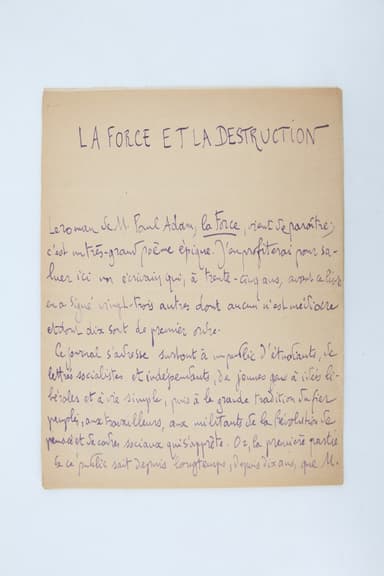 LA FORCE ET LA DESTRUCTION
Le roman de M. Paul Adam, la Force, vient de paraître;
c'est un très-grand poème épique. J'en profiterai pour sa-
luer ici un écrivain qui, à trente-cinq ans, avant ce livre
en a signé vingt-trois autres dont aucun n'est médiocre
et dont dix sont de premier ordre.
Ce journal s'adresse surtout à un public d'étudiants, de
lettrés socialistes et indépendants, de jeunes gens à idées li-
bérales et à vie simple, puis à la grande tradition du fier
peuple, aux travailleurs, aux militants de la Révolution de
pensée et de cadres sociaux qui s'apprête. Or, la première partie
de ce public sait depuis longtemps, depuis dix ans, que M.